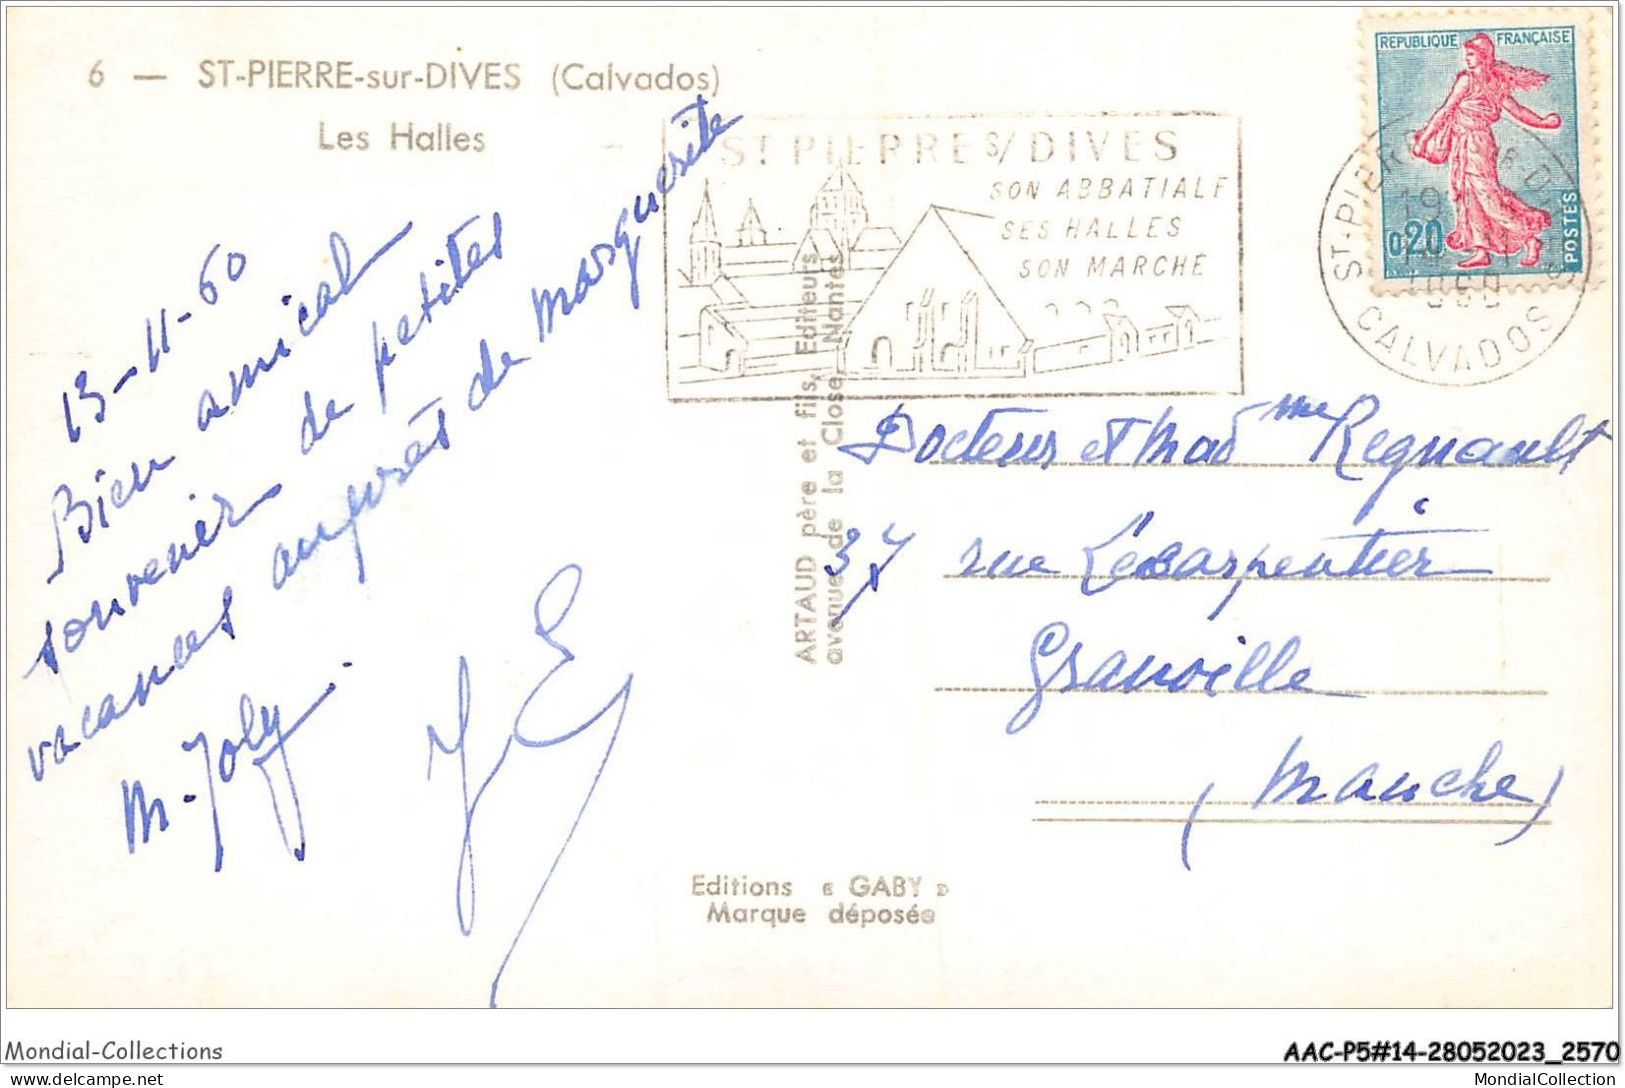 6 — ST-PIERRE-sur-DIVES (Calvados)
Les Halles
13-11-60
Bien amical
souvenir de petites
vacances auprès de Marguerite
M. Joly.
ST PIERRE S/ DIVES
SON ABBATIALE
SES HALLES
SON MARCHE
REPUBLIQUE FRANÇAISE
0,20
POSTES
CALVADOS
ARTAUD père et fils, Editeurs
avenue de la Close, Nantes
Docteur et Mad me Regnault
37 rue Lecarpentier
Granville
(Manche)
Editions « GABY »
Marque déposée
Mondial-Collections
AAC-P5#14-28052023_2570
www.delcampe.net
MondialCollection